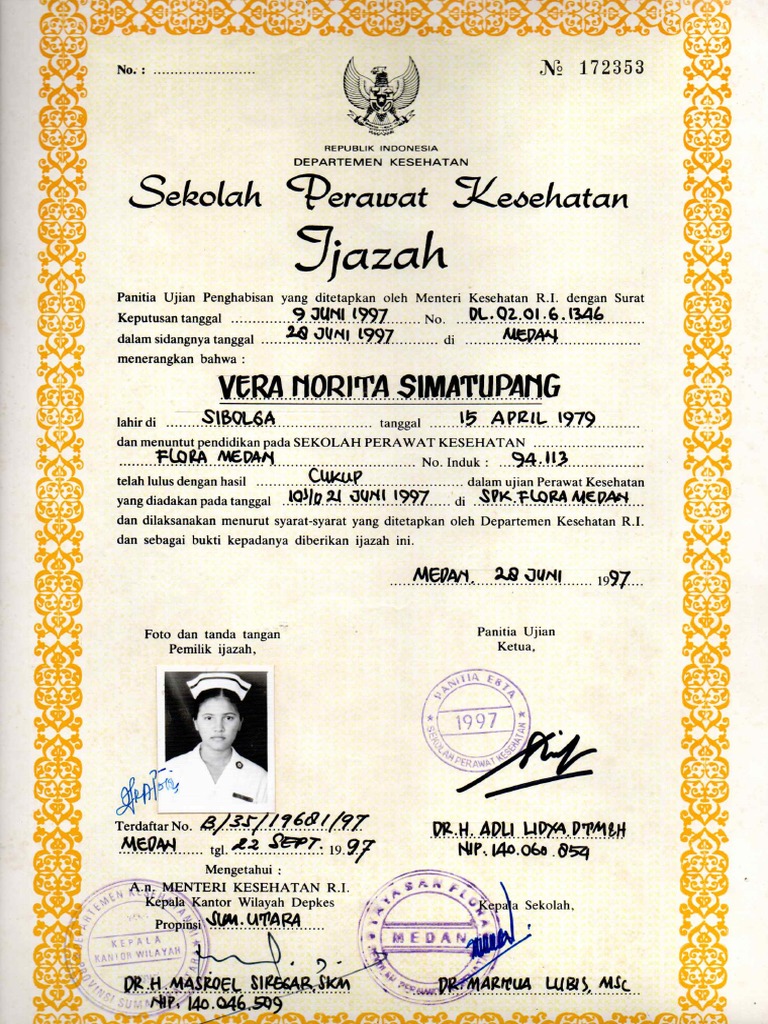 No. : ........................
№ 172353
REPUBLIK INDONESIA
DEPARTEMEN KESEHATAN
Sekolah Perawat Kesehatan
Ijazah
Panitia Ujian Penghabisan yang ditetapkan oleh Menteri Kesehatan R.I. dengan Surat
Keputusan tanggal 9 JUNI 1997 No. DL.02.01.6.1346
dalam sidangnya tanggal 28 JUNI 1997 di MEDAN
menerangkan bahwa :
VERA NORITA SIMATUPANG
lahir di SIBOLGA tanggal 15 APRIL 1979
dan menuntut pendidikan pada SEKOLAH PERAWAT KESEHATAN
FLORA MEDAN No. Induk : 94.113
telah lulus dengan hasil CUKUP dalam ujian Perawat Kesehatan
yang diadakan pada tanggal 10 S/D 21 JUNI 1997 di SPK.FLORA MEDAN
dan dilaksanakan menurut syarat-syarat yang ditetapkan oleh Departemen Kesehatan R.I.
dan sebagai bukti kepadanya diberikan ijazah ini.
MEDAN. 28 JUNI 1997
Foto dan tanda tangan
Pemilik ijazah,
Panitia Ujian
Ketua,
PANITIA EBTA
1997
SEKOLAH PERAWAT KESEHATAN
Terdaftar No. B/35/19681/97
MEDAN tgl. 22 SEPT. 1997
DR.H. ADLI LIDYA.DTM&H
NIP. 140.060.854
Mengetahui :
A.n. MENTERI KESEHATAN R.I.
Kepala Kantor Wilayah Depkes
Propinsi SUM.UTARA
Kepala Sekolah,
DEPARTEMEN KESEHATAN
KEPALA
KANTOR WILAYAH
PROPINSI SUMATERA UTARA
YAYASAN FLORA
MEDAN
DR.H. MASROEL SIREGAR.SKM
NIP. 140.046.509
DR. MARITUA LUBIS, MSC